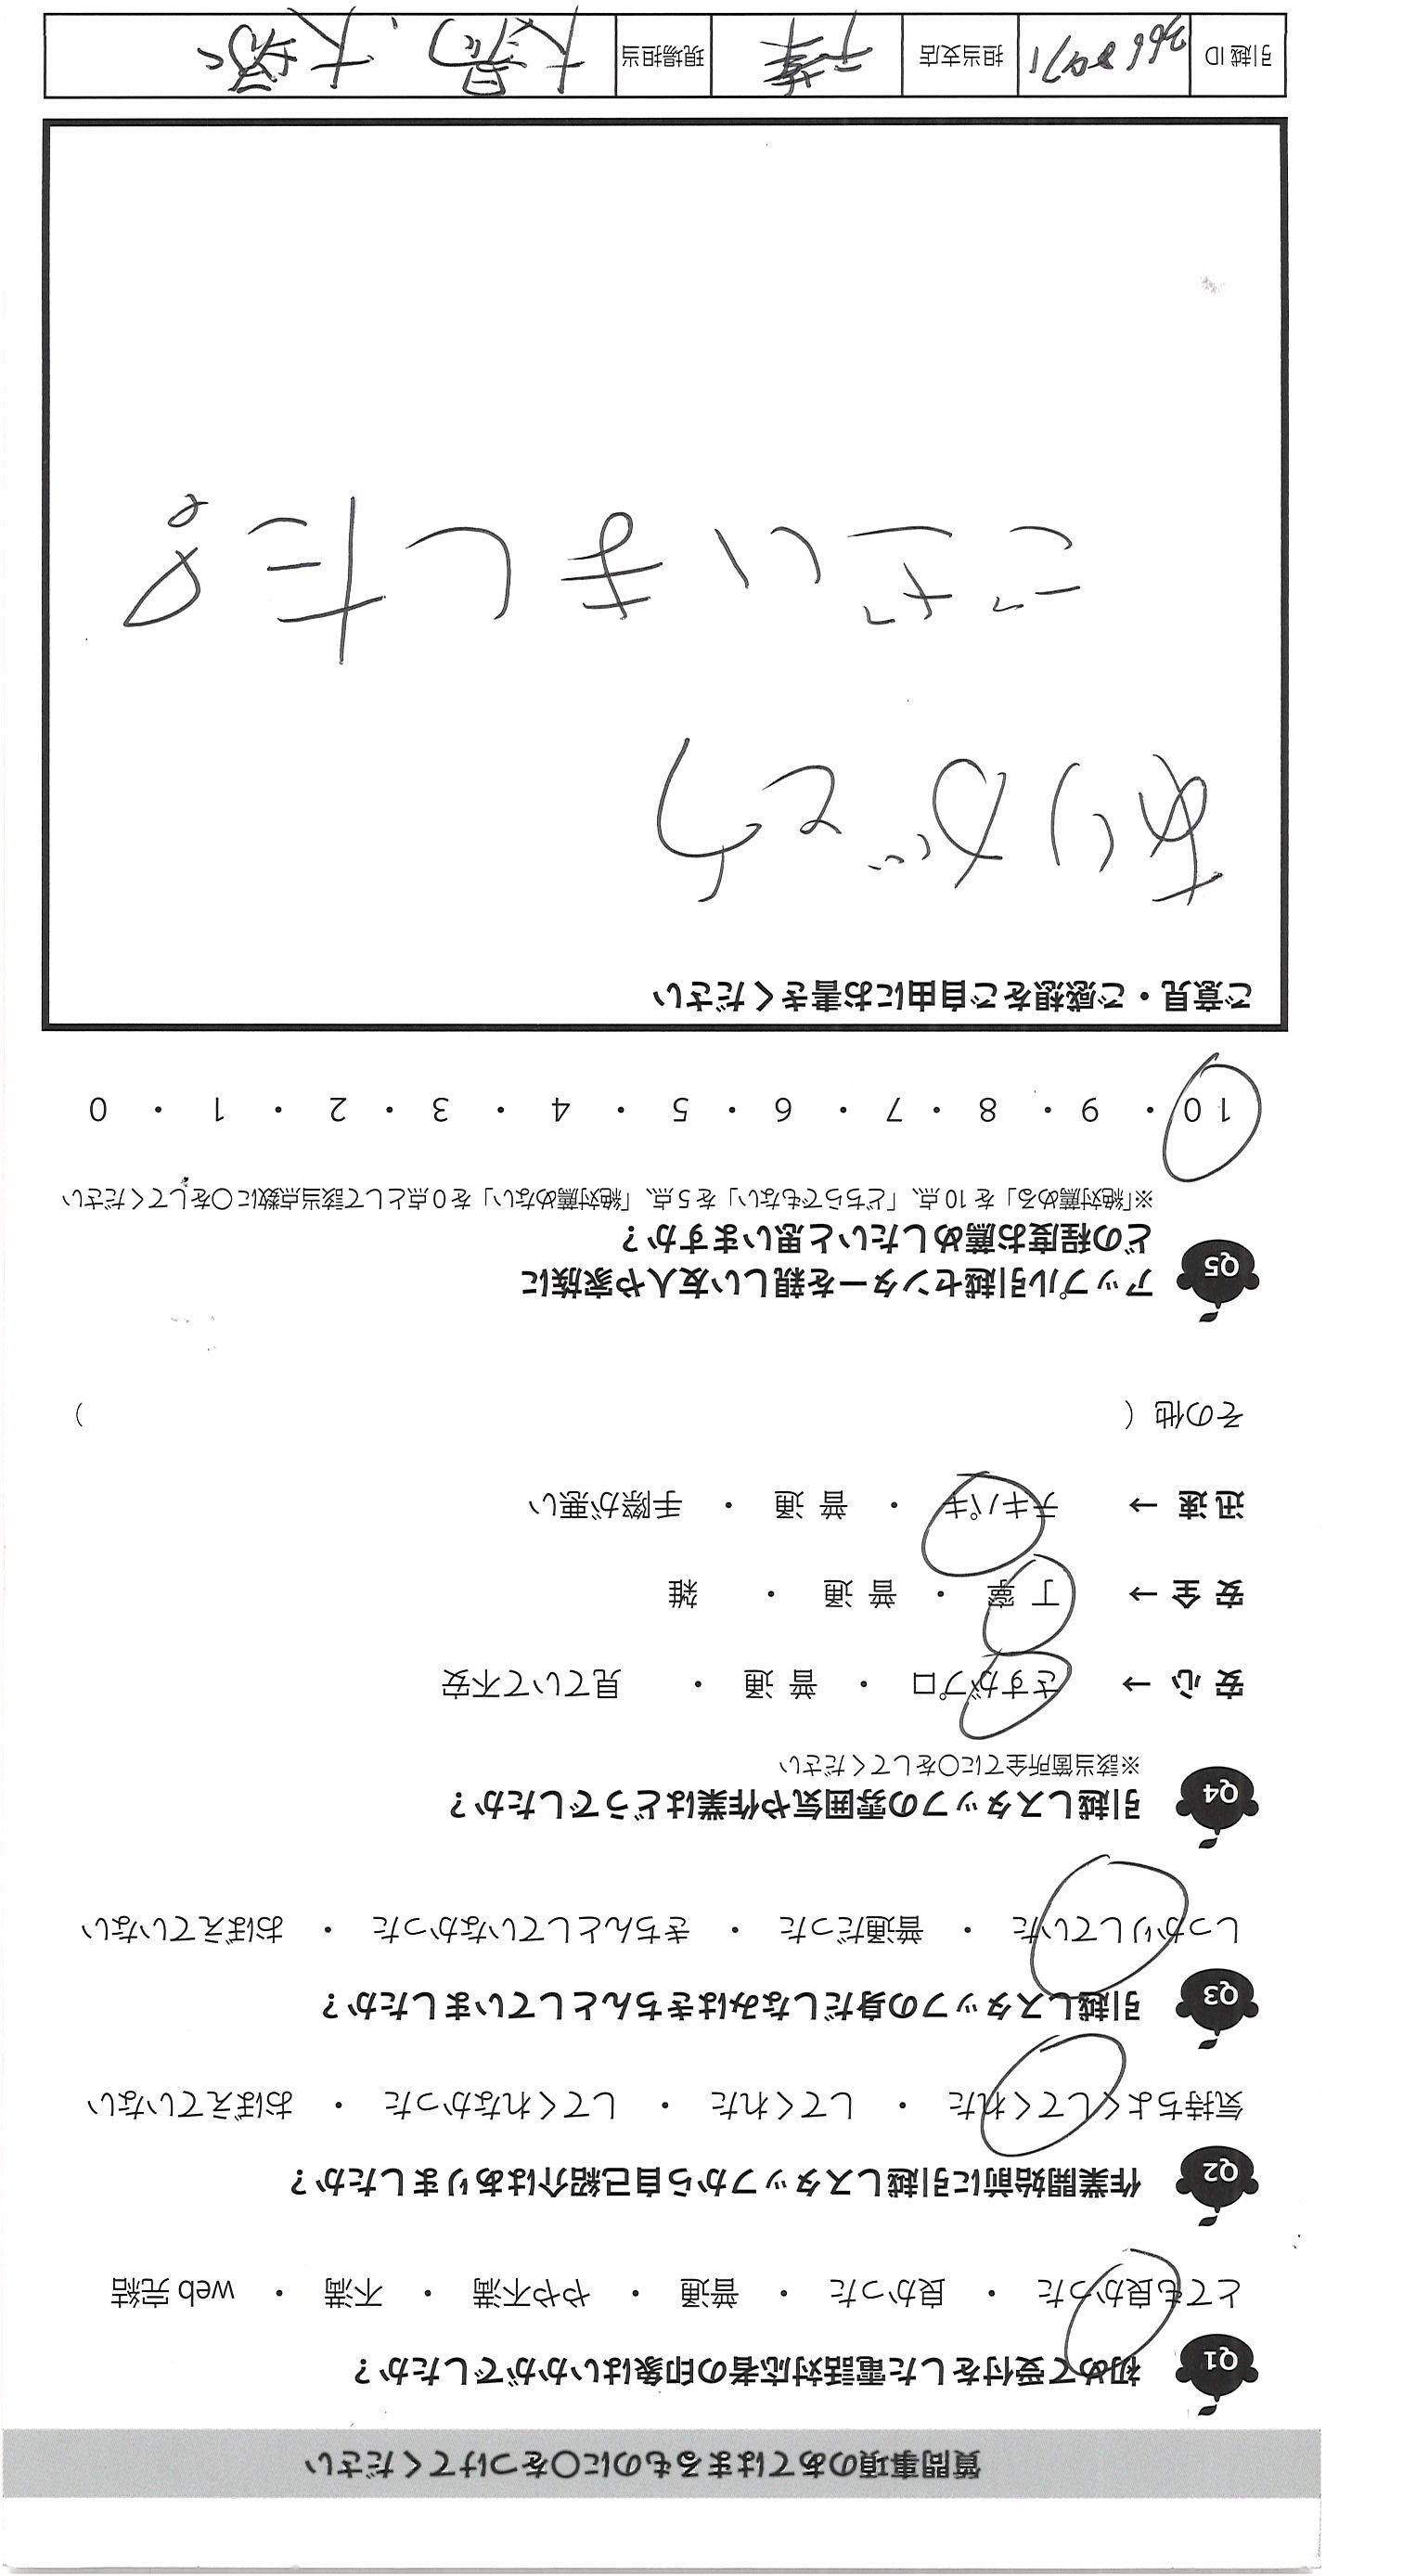 質問事項のあてはまるものに○をつけてください
Q1 初めて受付をした電話対応者の印象はいかがでしたか？
とても良かった ・ 良かった ・ 普通 ・ やや不満 ・ 不満 ・ web 完結
Q2 作業開始前に引越しスタッフから自己紹介はありましたか？
気持ちよくしてくれた ・ してくれた ・ してくれなかった ・ おぼえていない
Q3 引越しスタッフの身だしなみはきちんとしていましたか？
しっかりしていた ・ 普通だった ・ きちんとしていなかった ・ おぼえていない
Q4 引越しスタッフの雰囲気や作業はどうでしたか？
※該当箇所全てに○をしてください
安心 → さすがプロ ・ 普通 ・ 見ていて不安
安全 → 丁寧 ・ 普通 ・ 雑
迅速 → テキパキ ・ 普通 ・ 手際が悪い
その他 （ ）
Q5 アップル引越センターを親しい友人や家族に
どの程度お薦めしたいと思いますか？
※「絶対薦める」を 10 点、「どちらでもない」を 5 点、「絶対薦めない」を 0 点として該当点数に○をしてください
10 ・ 9 ・ 8 ・ 7 ・ 6 ・ 5 ・ 4 ・ 3 ・ 2 ・ 1 ・ 0
ご意見・ご感想をご自由にお書きください
ありがとう
ございました。
引越 ID 担当支店 千葉 現場担当